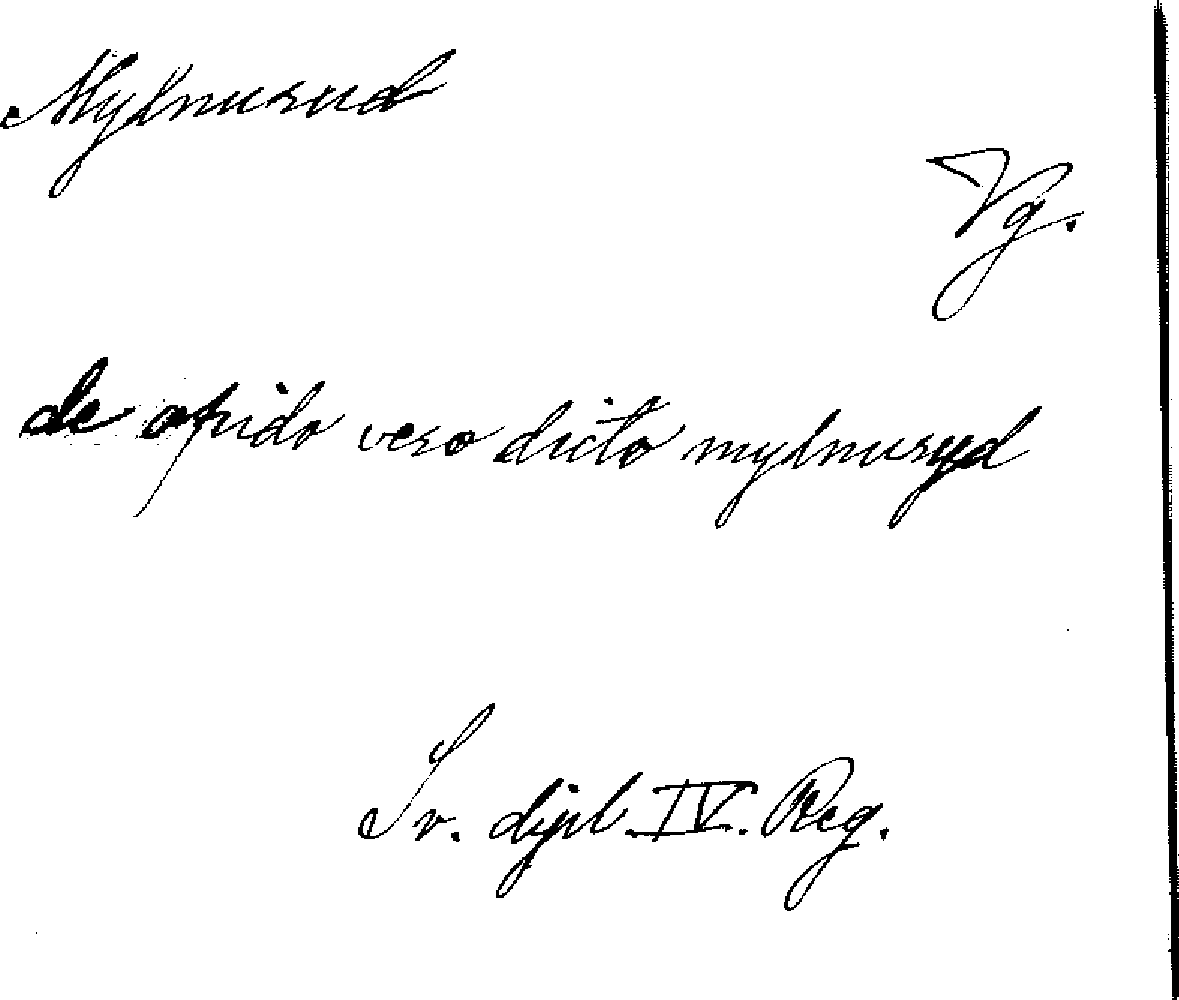 Mylnurud
Vg.
de opido vero dicto mylnuryd
Sv. dipl. IV. Reg.